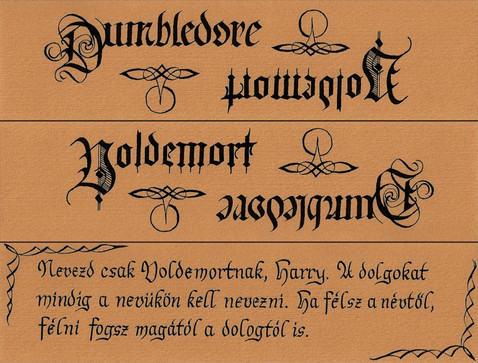 Dumbledore
Voldemort
Voldemort
Dumbledore
Nevezd csak Voldemortnak, Harry. A dolgokat
mindig a nevükön kell nevezni. Ha félsz a névtől,
félni fogsz magától a dologtól is.